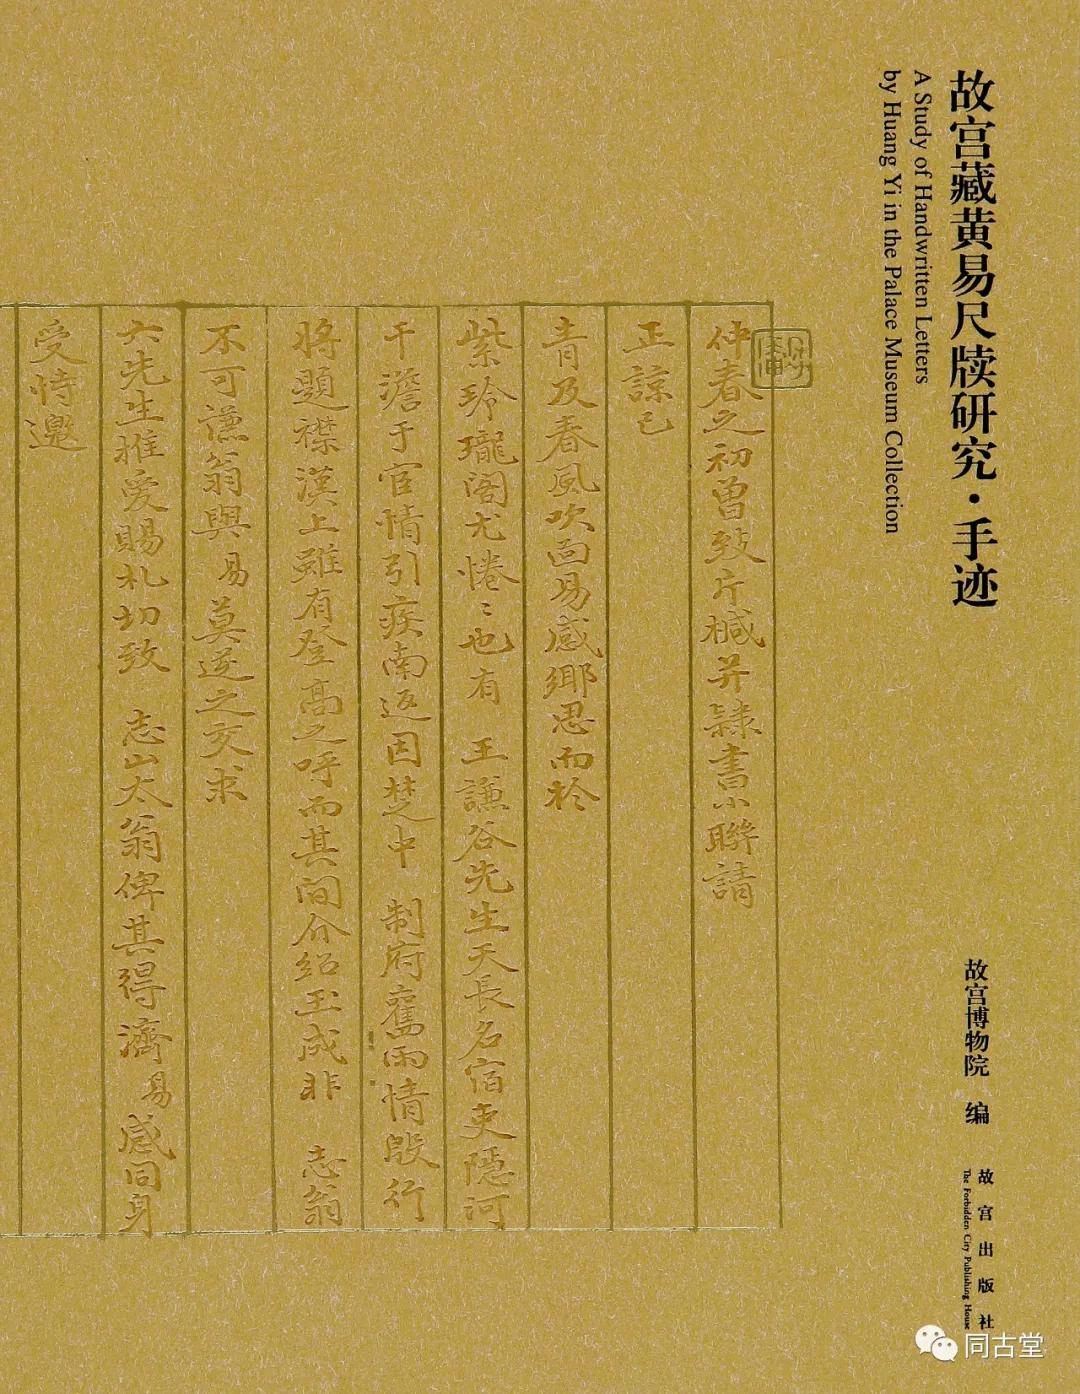 故宫藏黄易尺牍研究·手迹
A Study of Handwritten Letters
by Huang Yi in the Palace Museum Collection
故宫博物院 编
故宫出版社
The Forbidden City Publishing House
仲春之初曾致片械并隸書小聯請
正諒已
青及春風吹面易感鄉思而於
紫玲瓏閣尤惓〻也有 王謙谷先生天長名宿吏隱河
干澹于宦情引疾南返因楚中 制府舊雨情殷行
將題襟漢上雖有登高之呼而其間介紹玉成非 志翁
不可謙翁與易莫逆之交求
六先生推愛賜札切致 志山太翁俾其得濟易感同身
受恃邀
同古堂